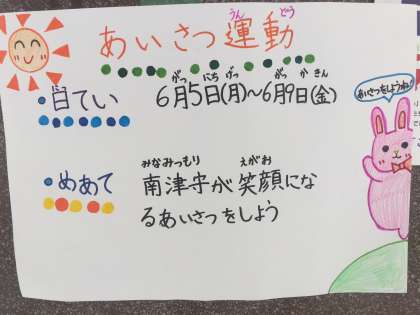 あいさつ運動
うん どう
・日てい 6月5日(月)～6月9日(金)
にっ がつ にち げつ がつ か きん
・めあて 南津守が笑顔にな
みなみつもり えがお
るあいさつをしよう
あいさつをしようね!